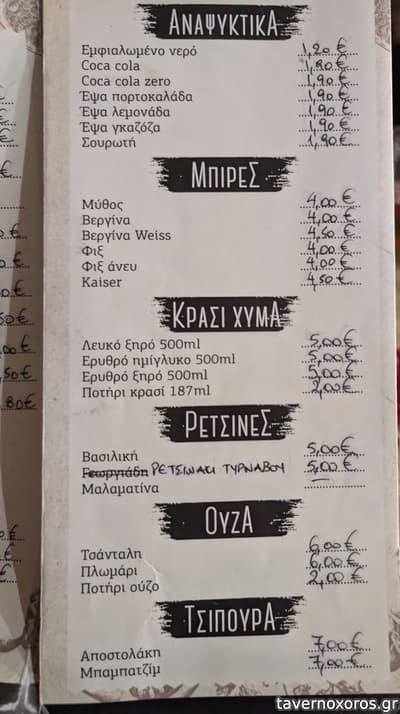 ΑΝΑΨΥΚΤΙΚΑ
Εμφιαλωμένο νερό 1,20 €
Coca cola 1,80 €
Coca cola zero 1,90 €
Έψα πορτοκαλάδα 1,90 €
Έψα λεμονάδα 1,90 €
Έψα γκαζόζα 1,90 €
Σουρωτή 1,90 €
ΜΠΙΡΕΣ
Μύθος 4,00 €
Βεργίνα 4,00 €
Βεργίνα Weiss 4,50 €
Φιξ 4,00 €
Φιξ άνευ 4,00 €
Kaiser 4,50 €
ΚΡΑΣΙ ΧΥΜΑ
Λευκό ξηρό 500ml 5,00 €
Ερυθρό ημίγλυκο 500ml 5,00 €
Ερυθρό ξηρό 500ml 5,00 €
Ποτήρι κρασί 187ml 2,00 €
ΡΕΤΣΙΝΕΣ
Βασιλική 5,00 €
Γεωργιάδη ΡΕΤΣΙΝΑΚΙ ΤΥΡΝΑΒΟΥ 5,00 €
Μαλαματίνα
ΟΥΖΑ
Τσάνταλη 6,00 €
Πλωμάρι 6,00 €
Ποτήρι ούζο 2,00 €
ΤΣΙΠΟΥΡΑ
Αποστολάκη 7,00 €
Μπαμπατζίμ 7,00 €
tavernoxoros.gr